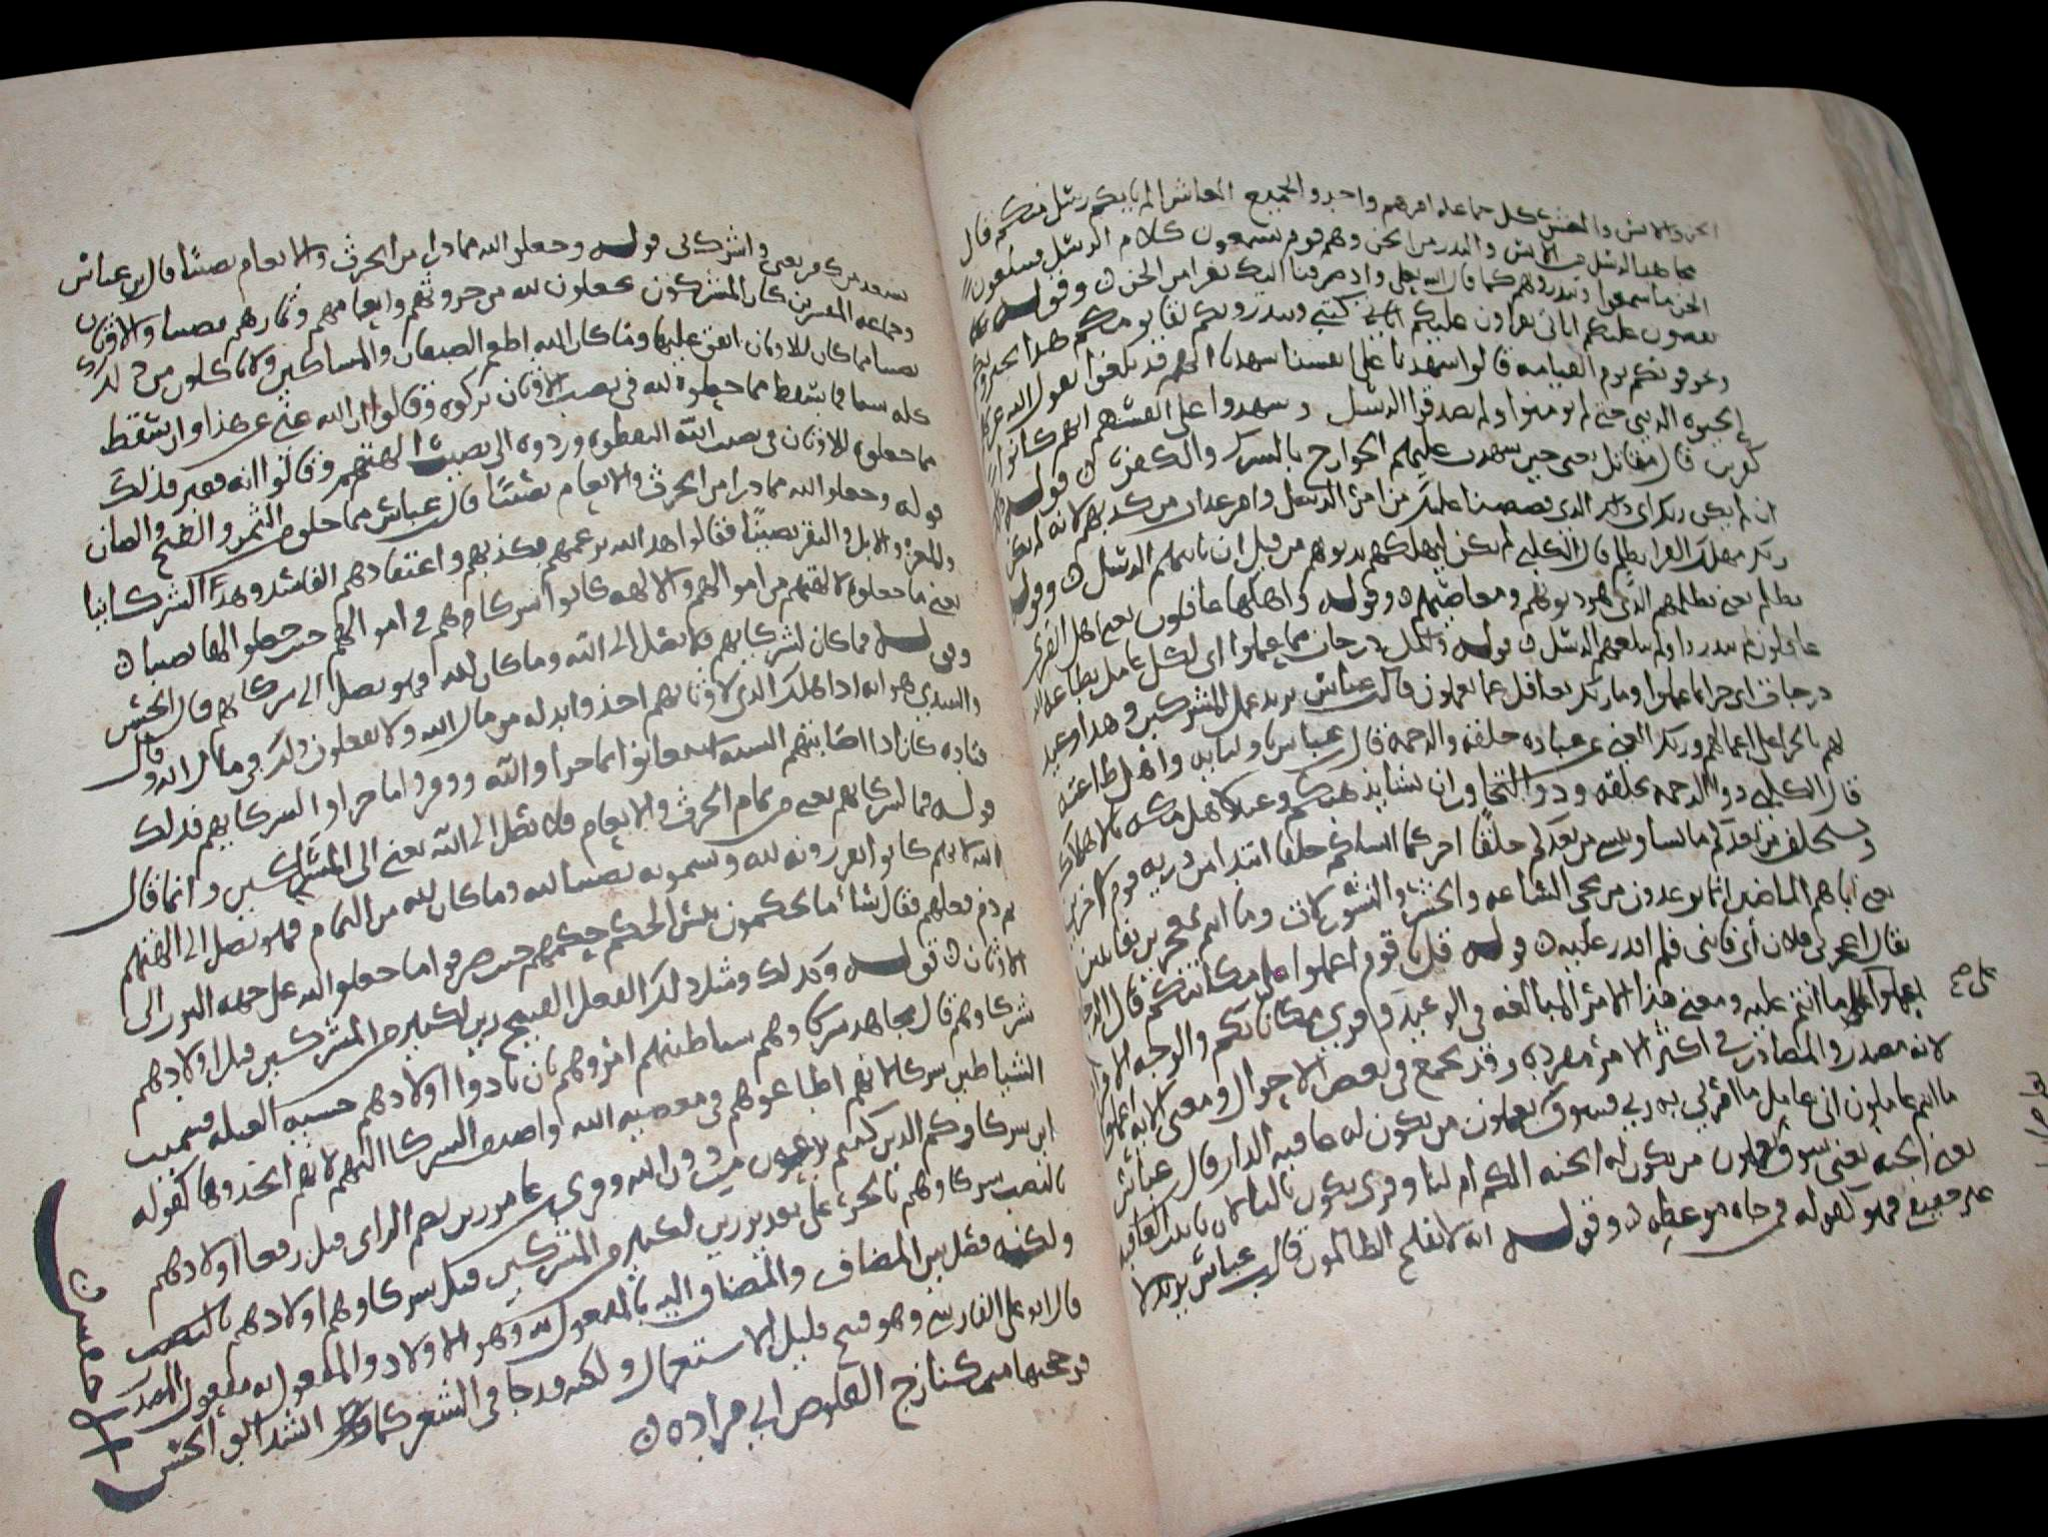 الجن والانس والمعشر كل جماعة امرهم واحد والجميع المعاشر الم ياتكم رسل منكم قال
مجاهد الرسل من الانس والنذر من الجن وهم قوم يسمعون كلام الرسل فيبلغون
الجن ما سمعوا وينذرونهم كما قال الله تعلى واذ صرفنا اليك نفرا من الجن وقوله
يقصون عليكم اياتي يقراون عليكم كتبي وينذرونكم لقا يومكم هذا
ويخوفونكم يوم القيامه قالوا شهدنا على انفسنا شهدنا انهم قد بلغوا يقول الله
الحيوه الدنيا حتى لم يومنوا ولم يصدقوا الرسل وشهدوا على انفسهم انهم كانوا
كفرين قال مقاتل يعني حين شهدت عليهم الجوارح بالشرك والكفر قوله
ان لم يكن ربك اي ذلك الذي قصصنا عليك من امر الرسل وامر عذاب من كذب بهم لانه لم يكن
ربك مهلك القرى بظلم قال الكلبي لم يكن ليهلكهم بذنوبهم من قبل ان ياتيهم الرسل وقوله
بظلم يعني بظلمهم الذي هو ذنوبهم ومعاصيهم وقوله واهلها غافلون يعني اهل القرى
غافلون لم ينذروا ولم يبلغهم الرسل قوله ولكل درجات مما عملوا اي لكل عامل بطاعة الله
درجات اي جزا بما عملوا وما ربك بغافل عما يعملون قال ابن عباس يريد عمل المشركين وهذا وعيد
لهم بالجزا على اعمالهم وربك الغني عن عباده خلقه ذو الرحمه قال ابن عباس باوليايه واهل طاعته
قال الكلبي ذو الرحمه بخلقه وذو التجاوز ان يشا يذهبكم وعيد لاهل مكه بالاهلاك
ويستخلف من بعدكم ما يشا وينشئ من بعدكم خلقا اخر كما انشاكم خلقا ابتدا من ذريه قوم اخرين
يعني اباهم الماضين انما توعدون من مجي الساعه والحشر والنشور لات وما انتم بمعجزين بفايتين
يقال اعجزني فلان اي فاتني فلم اقدر عليه قوله قل يا قوم اعملوا على مكانتكم قال
يعملوا على ما انتم عليه ومعنى هذا الامر المبالغه في الوعيد وقري مكاناتكم والوجه الافراد
لانه مصدر والمصادر في اكثر الامر مفرده وقد يجمع في بعض الاحوال ومعنى الايه اعملوا
ما انتم عاملون اني عامل ما امرني به ربي فسوف تعلمون من يكون له عاقبه الدار قال ابن عباس
يعني الجنه يعني سوف تعلمون من يكون له الجنه الكم ام لنا وقري يكون باليا لان تانيث العاقبه
غير حقيقي فهو كقوله فمن جاه موعظه وقوله انه لا يفلح الظالمون قال ابن عباس يريد لا
يسعد من كفر بي واشرك بي قوله وجعلوا لله مما ذرا من الحرث والانعام نصيبا قال ابن عباس
وجماعه المفسرين كان المشركون يجعلون لله من حروثهم وانعامهم وثمارهم نصيبا وللاوثان
نصيبا فما كان للاوثان انفق عليها وما كان لله اطعم الضيفان والمساكين ولا ياكلون من ذلك
كله شيا فما سقط مما جعلوه لله في نصيب الاوثان تركوه وقالوا ان الله غني عن هذا وان سقط
مما جعلوه للاوثان في نصيب الله التقطوه وردوه الى نصيب الهتهم وقالوا انه فقير فذلك
قوله وجعلوا لله مما ذرا من الحرث والانعام نصيبا قال ابن عباس مما خلق من الثمر والقمح والضان
والمعز والابل والبقر نصيبا فقالوا هذا لله بزعمهم بكذبهم واعتقادهم الفاسد وهذا لشركاينا
يعني ما جعلوه لالهتهم من اموالهم والالهه كانوا شركاهم في اموالهم حيث جعلوا لها نصيبا
وقوله فما كان لشركايهم فلا يصل الى الله وما كان لله فهو يصل الى شركايهم قال الحسن
والسدي هو انه اذا هلك الذي لاوثانهم اخذوا بدله من مال الله ولا يفعلون ذلك في مال الله وقال
قتاده كان اذا اصابتهم السنه استعانوا بما جزاوا لله ووفروا ما جزاوا لشركايهم فذلك
قوله فما لشركايهم يعني من تمام الحرث والانعام فلا يصل الى الله يعني الى المساكين وانما قال
الله لانهم كانوا يفرزونه لله ويسمونه نصيبا لله وما كان لله من التمام فهو يصل الى الهتهم
ثم ذم فعلهم فقال سا ما يحكمون بئس الحكم حكمهم حيث صرفوا ما جعلوا لله على جهه التبرر الى
الاوثان قوله وكذلك ومثل ذلك الفعل القبيح زين لكثير من المشركين قتل اولادهم
شركاوهم قال مجاهد شركاوهم شياطينهم امروهم بان يادوا اولادهم خشيه العيله فسميت
الشياطين شركا لانهم اطاعوهم في معصيه الله واضيف الشركا اليهم لانهم اتخذوها كقوله
اين شركاوكم الذين كنتم تزعمون من دون الله وقري ابن عامر زين بضم الزاي قتل رفعا اولادهم
بالنصب شركاوهم بالجر على تقدير زين لكثير من المشركين قتل شركاوهم اولادهم بالنصب
ولكنه فصل بين المضاف والمضاف اليه بالمفعول به وهو الاولاد والمفعول به مفعول المصدر
قال ابو علي الفارسي وهو قبيح قليل الاستعمال ولكنه قد جا في الشعر كما انشد ابو الحسن
فزججتها متمكنا زج القلوص ابي مزاده